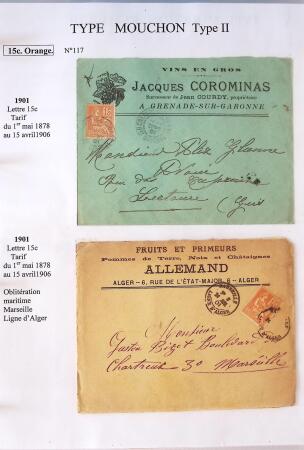 TYPE MOUCHON Type II
15c. Orange. N°117
1901
Lettre 15c
Tarif
du 1er mai 1878
au 15 avril1906
VINS EN GROS
JACQUES COROMINAS
Successeur de Jean GOURDY, propriétaire
A GRENADE-SUR-GARONNE
Monsieur
Lectoure (Gers)
1901
Lettre 15c
Tarif
du 1er mai 1878
au 15 avril1906
Oblitération
maritime
Marseille
Ligne d'Alger
FRUITS ET PRIMEURS
Pommes de Terre, Noix et Châtaignes
ALLEMAND
ALGER - 6, RUE DE L'ÉTAT-MAJOR, 6 - ALGER
Monsieur
Gaston Bizot Boulevard
Chartreux 30 Marseille